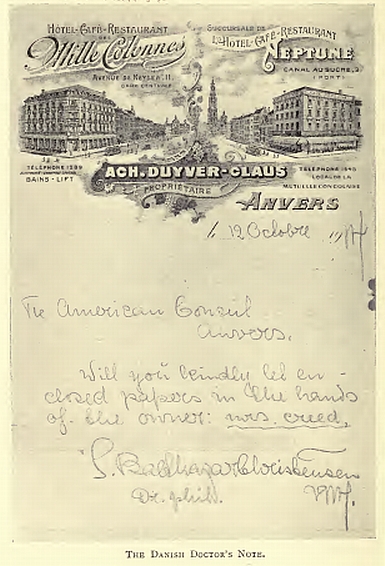 HÔTEL-CAFÉ-RESTAURANT
DES
Mille Colonnes
AVENUE DE KEYSER, 11.
GARE CENTRALE
SUCCURSALE DE
L'HÔTEL-CAFÉ-RESTAURANT
NEPTUNE
CANAL AU SUCRE, 3
(PORT)
TÉLÉPHONE 1299
BAINS - LIFT
TÉLÉPHONE 1640
LOCAL DE LA
MUTUELLE CONDOLOISE
ACH. DUYVER-CLAUS
PROPRIÉTAIRE
ANVERS
le 12 Octobre 1914
The American Consul
Anvers.
Will you kindly let en-
closed papers in the hands
of the owner: mrs. creed.
S. Balthazar Christensen
Dr. phil.
THE DANISH DOCTOR'S NOTE.